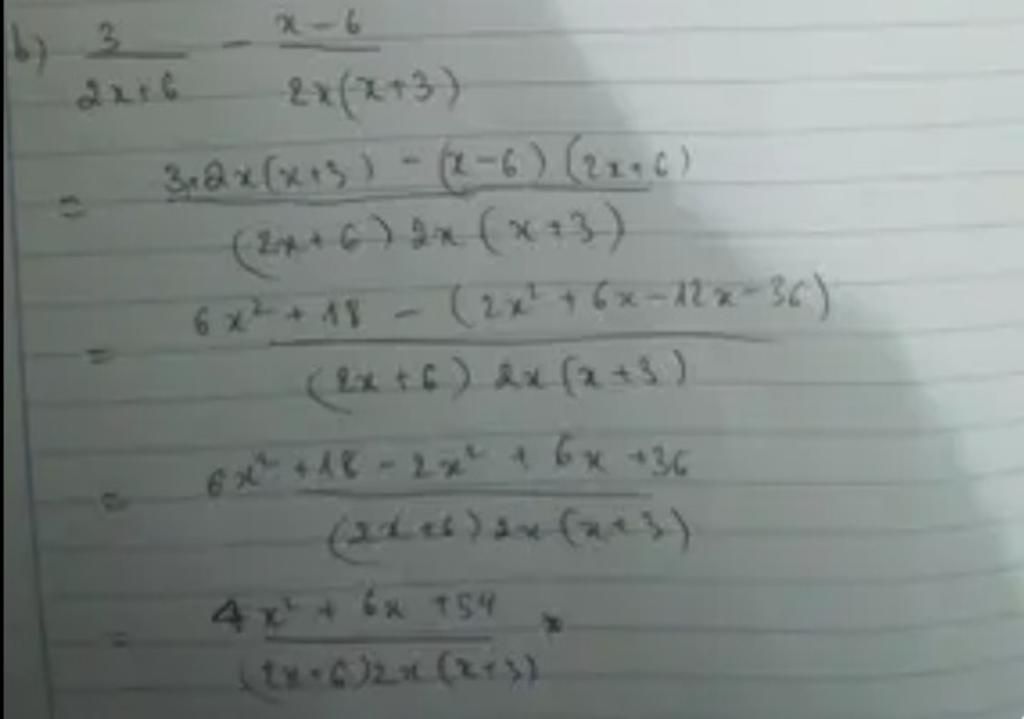 b) 3/(2x+6) - (x-6)/(2x(x+3))
= (3.2x(x+3) - (x-6)(2x+6))/((2x+6)2x(x+3))
= (6x²+18 - (2x²+6x-12x-36))/((2x+6)2x(x+3))
= (6x²+18-2x²+6x+36)/((2x+6)2x(x+3))
= (4x²+6x+54)/((2x+6)2x(x+3))